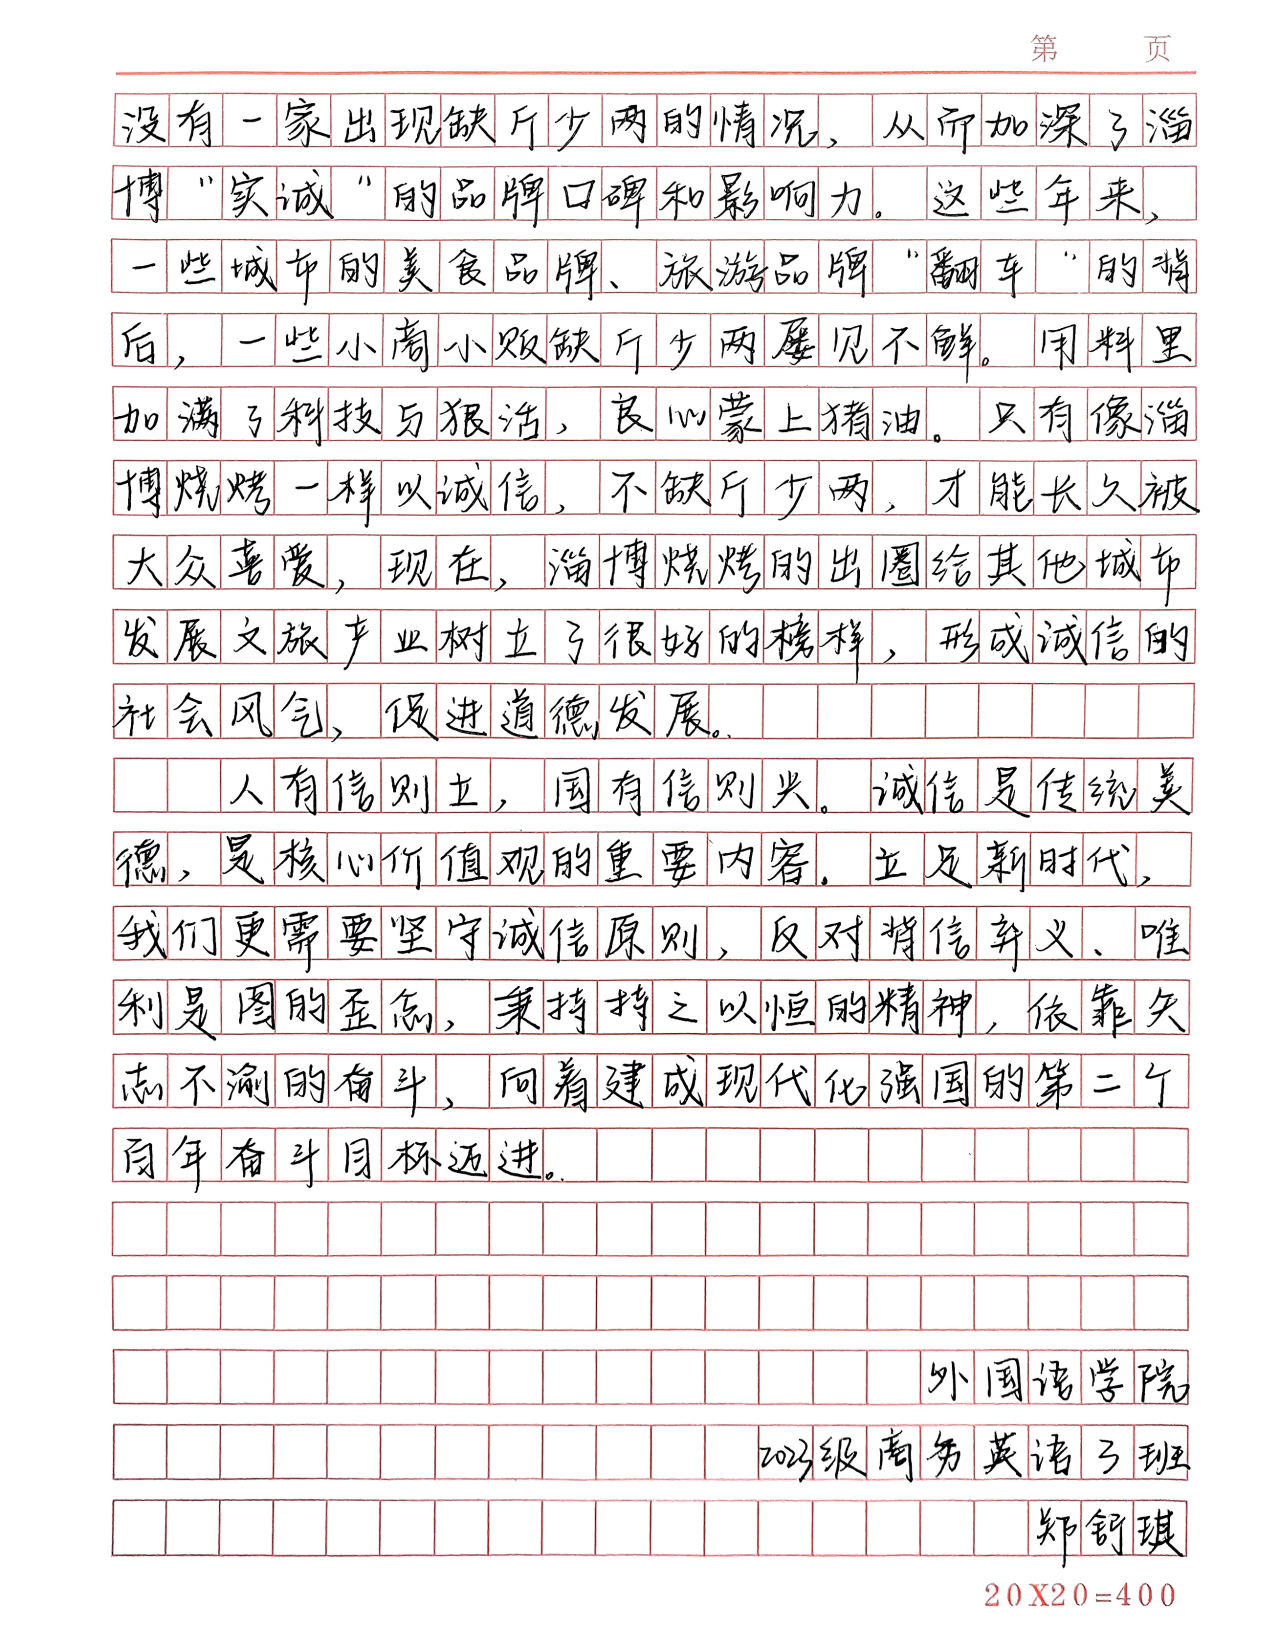 第 页
没有一家出现缺斤少两的情况，从而加深了淄
博“实诚”的品牌口碑和影响力。这些年来，
一些城市的美食品牌、旅游品牌“翻车”的背
后，一些小商小贩缺斤少两屡见不鲜。用料里
加满了科技与狠活，良心蒙上猪油。只有像淄
博烧烤一样以诚信，不缺斤少两，才能长久被
大众喜爱，现在，淄博烧烤的出圈给其他城市
发展文旅产业树立了很好的榜样，形成诚信的
社会风气，促进道德发展。
人有信则立，国有信则兴。诚信是传统美
德，是核心价值观的重要内容。立足新时代，
我们更需要坚守诚信原则，反对背信弃义、唯
利是图的歪念，秉持持之以恒的精神，依靠矢
志不渝的奋斗，向着建成现代化强国的第二个
百年奋斗目标迈进。
外国语学院
2023级商务英语3班
郑舒琪
20X20=400